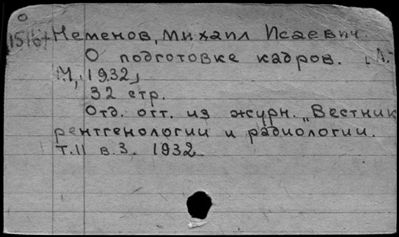 1516т Неменов, Михаил Исаевич.
О подготовке кадров. Л.-
М, 1932,
32 стр.
Отд. отт. из журн. „Вестник
рентгенологии и радиологии.
т.11 в.3. 1932